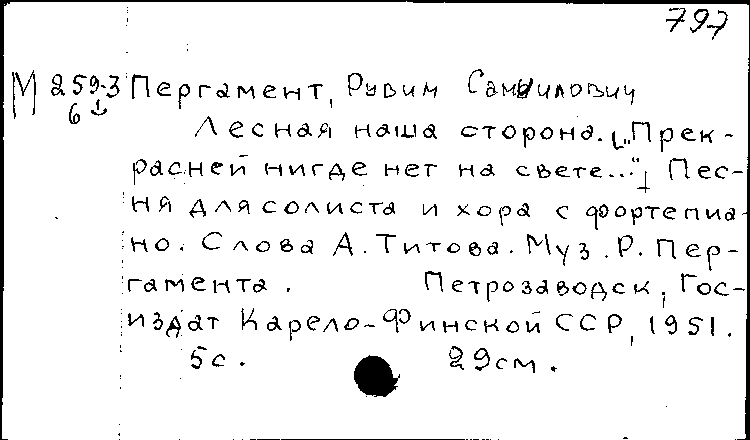 797
М 259-3 Пергамент, Рувим Самуилович
6
Лесная наша сторона. ["Прек-
расней нигде нет на свете..."] Пес-
ня для солиста и хора с фортепиа-
но. Слова А. Титова. Муз. Р. Пер-
гамента. Петрозаводск, Гос-
издат Карело-Финской ССР, 1951.
5с. 29см.